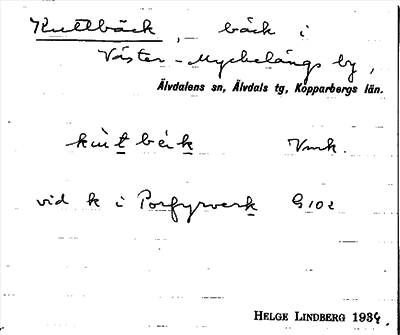 Kuttbäck, bäck i
Väster-Myckelängs by,
Älvdalens sn, Älvdals tg, Kopparbergs län.
kùt bèk Vmk.
vid k i Porfyrverk G102
HELGE LINDBERG 1934.